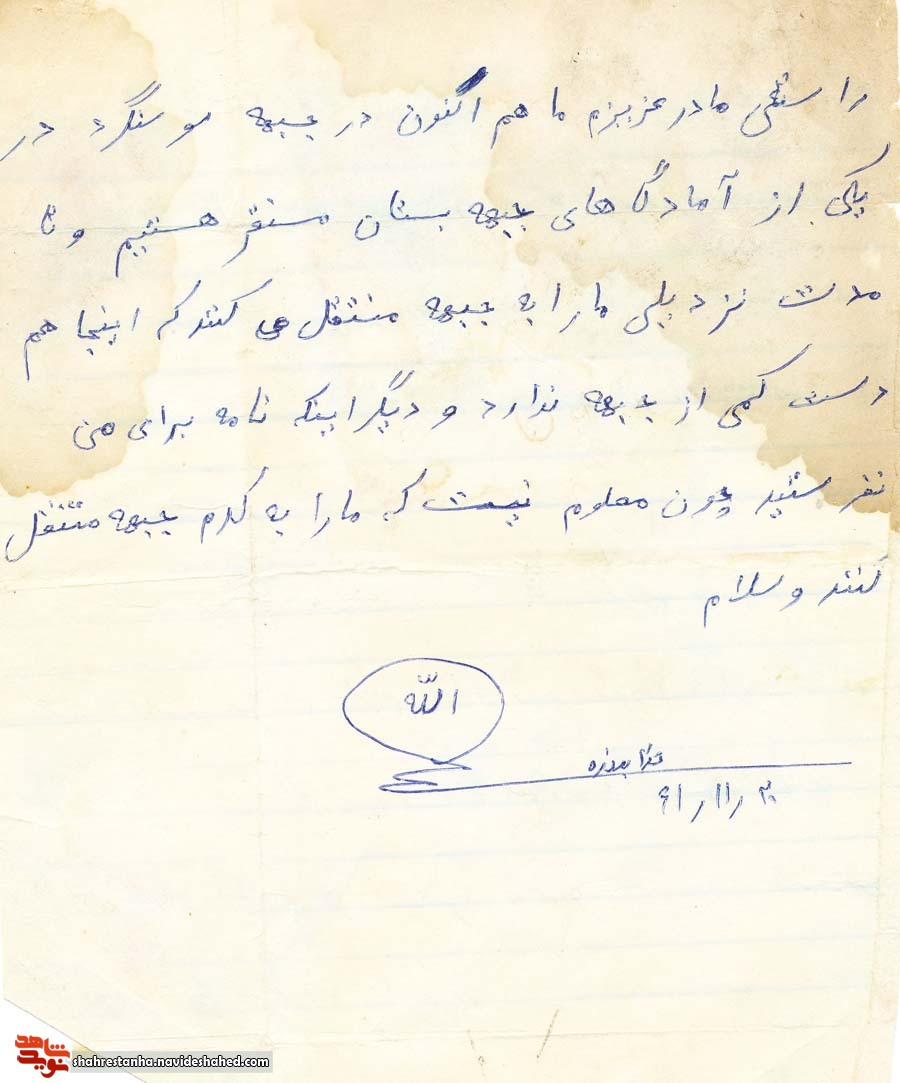 راستی مادر عزیزم ما هم اکنون در جبهه سوسنگرد در
یکی از آمادگاهای جبهه بستان مستقر هستیم و تا
مدت نزدیکی ما را به جبهه منتقل می کنند که اینجا هم
دست کمی از جبهه ندارد و دیگر اینکه نامه برای من
نفرستید چون معلوم نیست که ما را به کدم جبهه منتقل
کنند و سلام
الله
۶۱٫۱۱٫۲۰
نوید شاهد
shahrestanha.navideshahed.com